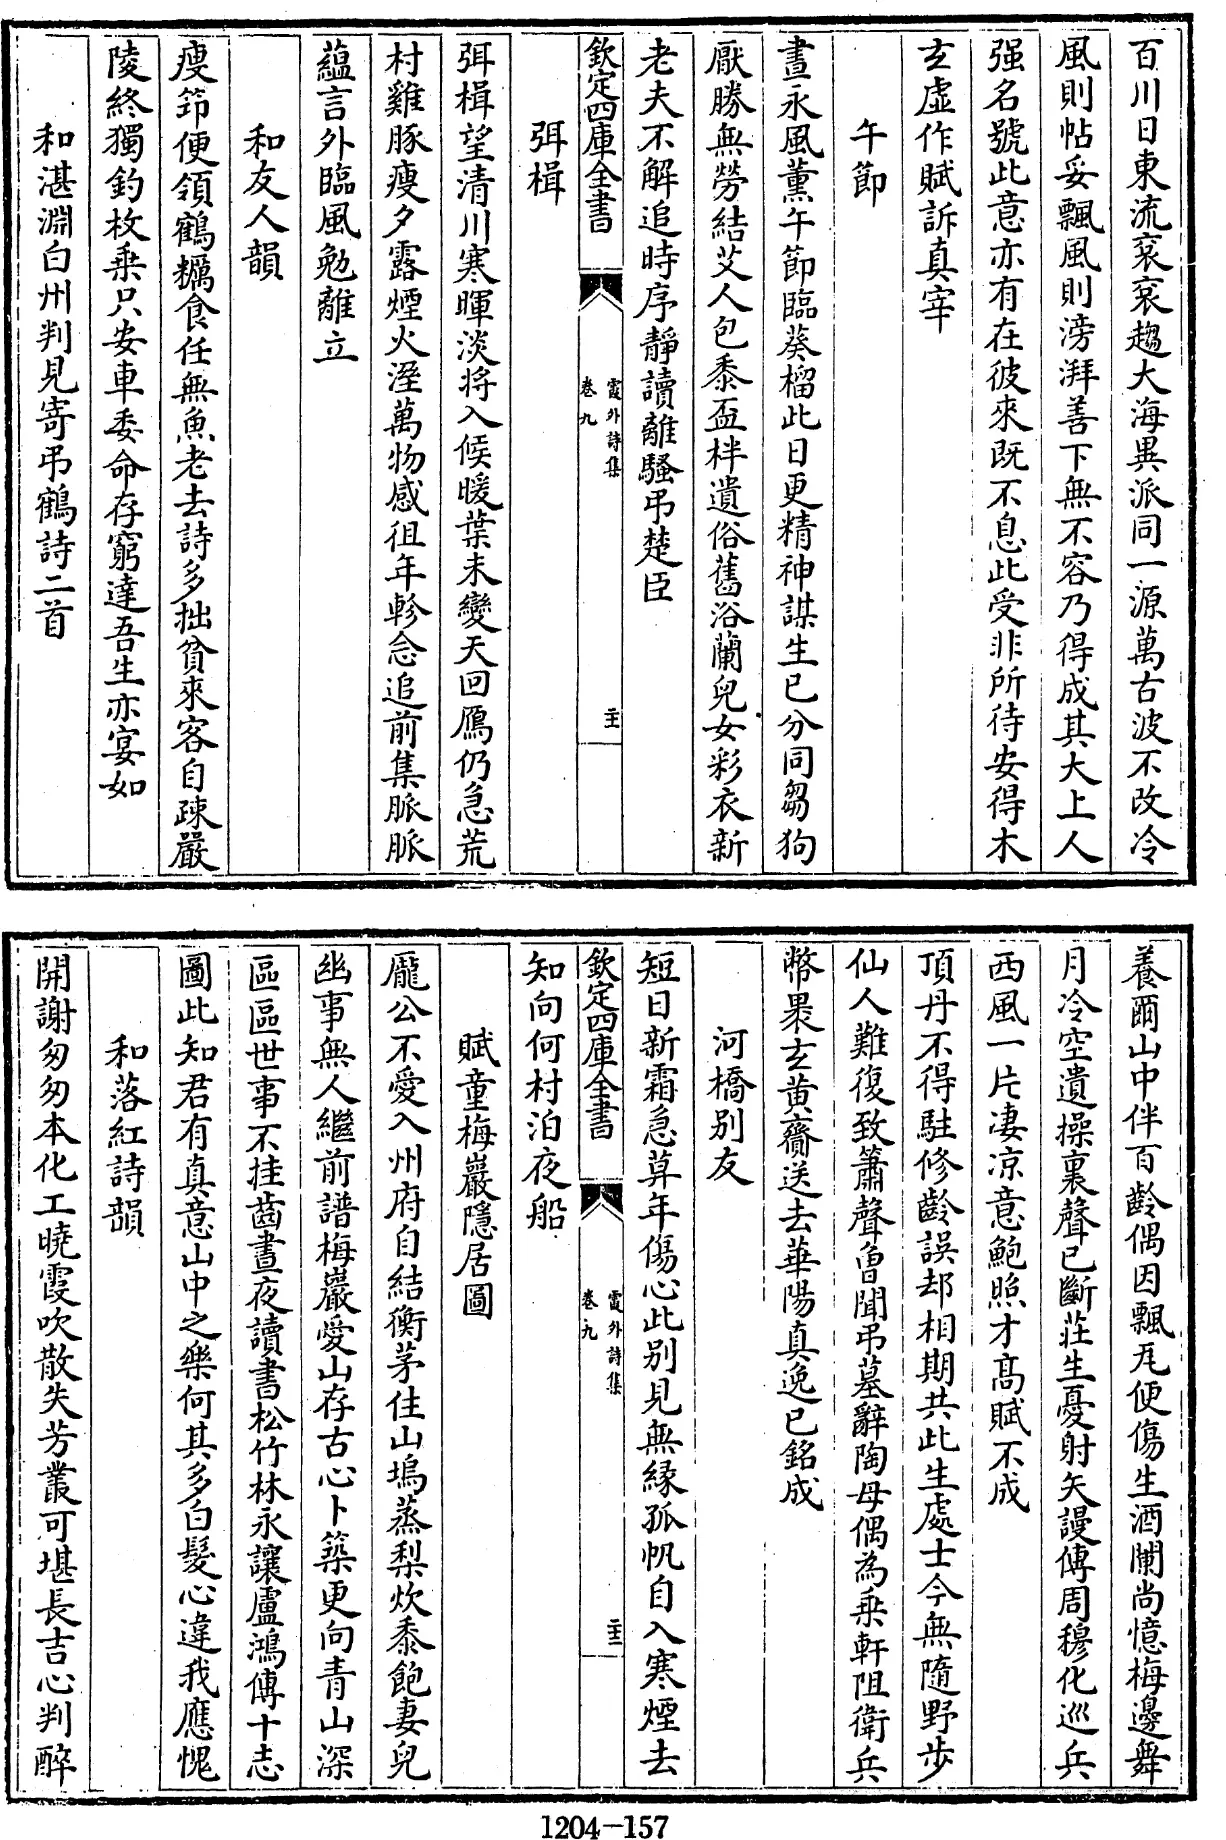 百川日東流衮衮趨大海異派同一源萬古波不改冷
風則帖妥飄風則滂湃善下無不容乃得成其大上人
强名號此意亦有在彼來既不息此受非所待安得木
玄虛作賦訴真宰
午節
晝永風薰午節臨葵榴此日更精神謀生已分同芻狗
厭勝無勞結艾人包黍盃柈遺俗舊浴蘭兒女彩衣新
老夫不解追時序靜讀離騷弔楚臣
欽定四庫全書
霞外詩集
卷九
二十一
弭楫
弭楫望清川寒暉淡將入候暖葉未變天回鴈仍急荒
村雞豚瘦夕露煙火溼萬物感徂年軫念追前集脈脈
蘊言外臨風勉離立
和友人韻
瘦笻便領鶴糲食任無魚老去詩多拙貧來客自疎嚴
陵終獨釣枚乗只安車委命存窮達吾生亦宴如
和湛淵白州判見寄弔鶴詩二首
養爾山中伴百齡偶因飄瓦便傷生酒闌尚憶梅邊舞
月冷空遺操裏聲已斷莊生憂射矢謾傳周穆化巡兵
西風一片凄凉意鮑照才髙賦不成
頂丹不得駐修齡誤却相期共此生處士今無隨野步
仙人難復致簫聲曽聞弔墓辭陶母偶為乗軒阻衛兵
幣裹玄黄齎送去華陽真逸已銘成
河橋别友
短日新霜急莫年傷心此别見無縁孤帆自入寒煙去
欽定四庫全書
霞外詩集
卷九
二十二
知向何村泊夜船
賦童梅巖隱居圖
龎公不愛入州府自結衡茅住山塢蒸梨炊黍飽妻兒
幽事無人繼前譜梅巖愛山存古心卜築更向青山深
區區世事不挂齒晝夜讀書松竹林永讓盧鴻傳十志
圖此知君有真意山中之樂何其多白髮心違我應愧
和落紅詩韻
開謝匆匆本化工曉霞吹散失芳叢可堪長吉心判醉
1204—157